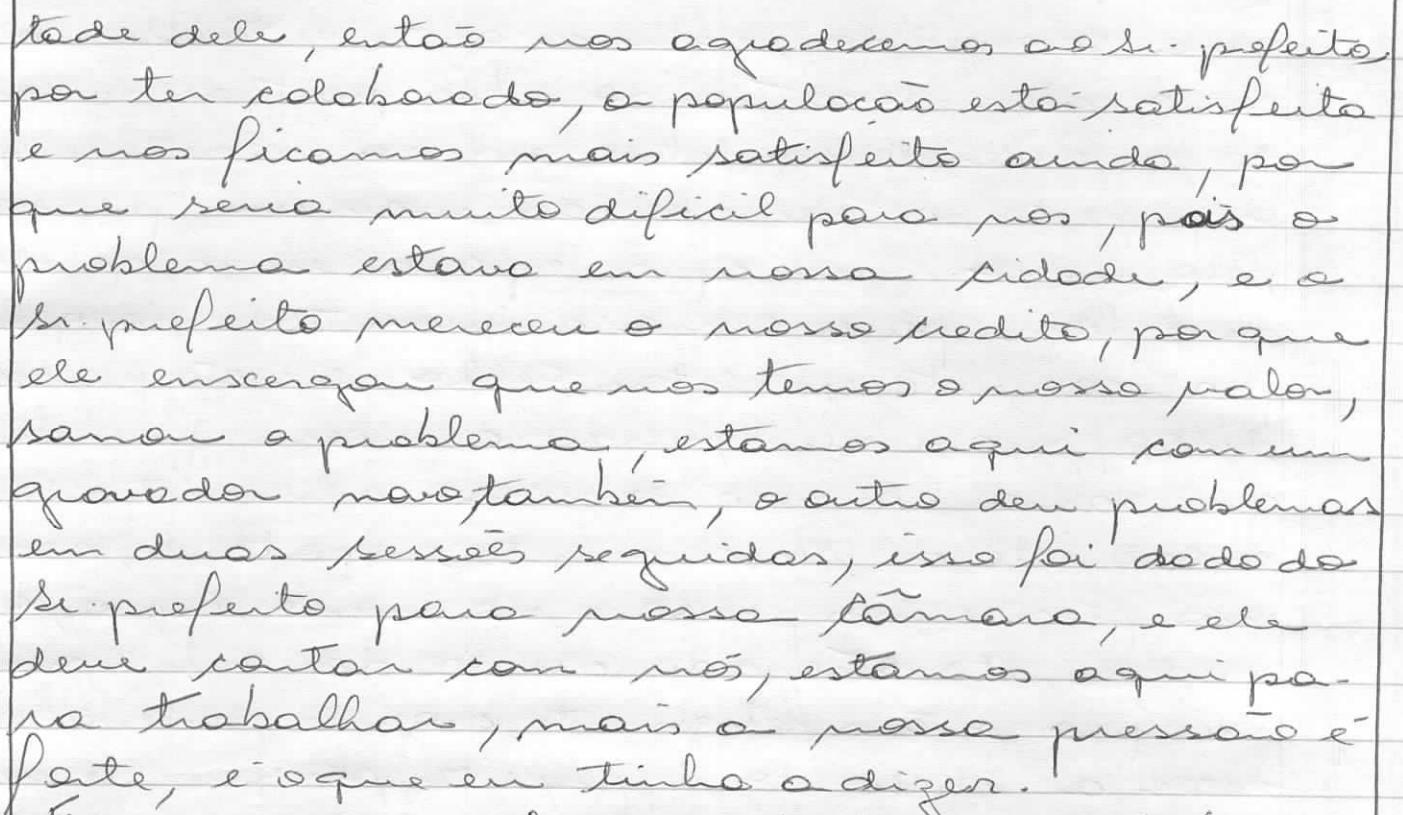 tade dele, então nos agradecemos ao Sr. prefeito
por ter colaborado, a população está satisfeita
e nos ficamos mais satisfeito ainda, por
que seria muito dificil para nos, pois o
problema estava em nossa cidade, e o
Sr. prefeito mereceu o nosso credito, por que
ele enscergou que nos temos o nosso valor,
sanou o problema, estamos aqui com um
gravador novo, também, o outro deu problemas
em duas sessões seguidas, isso foi dado do
Sr. prefeito para nossa Câmara, e ele
deve contar com nós, estamos aqui pa-
ra trabalhar, mais a nossa pressão é
forte, é o que eu tinha a dizer.